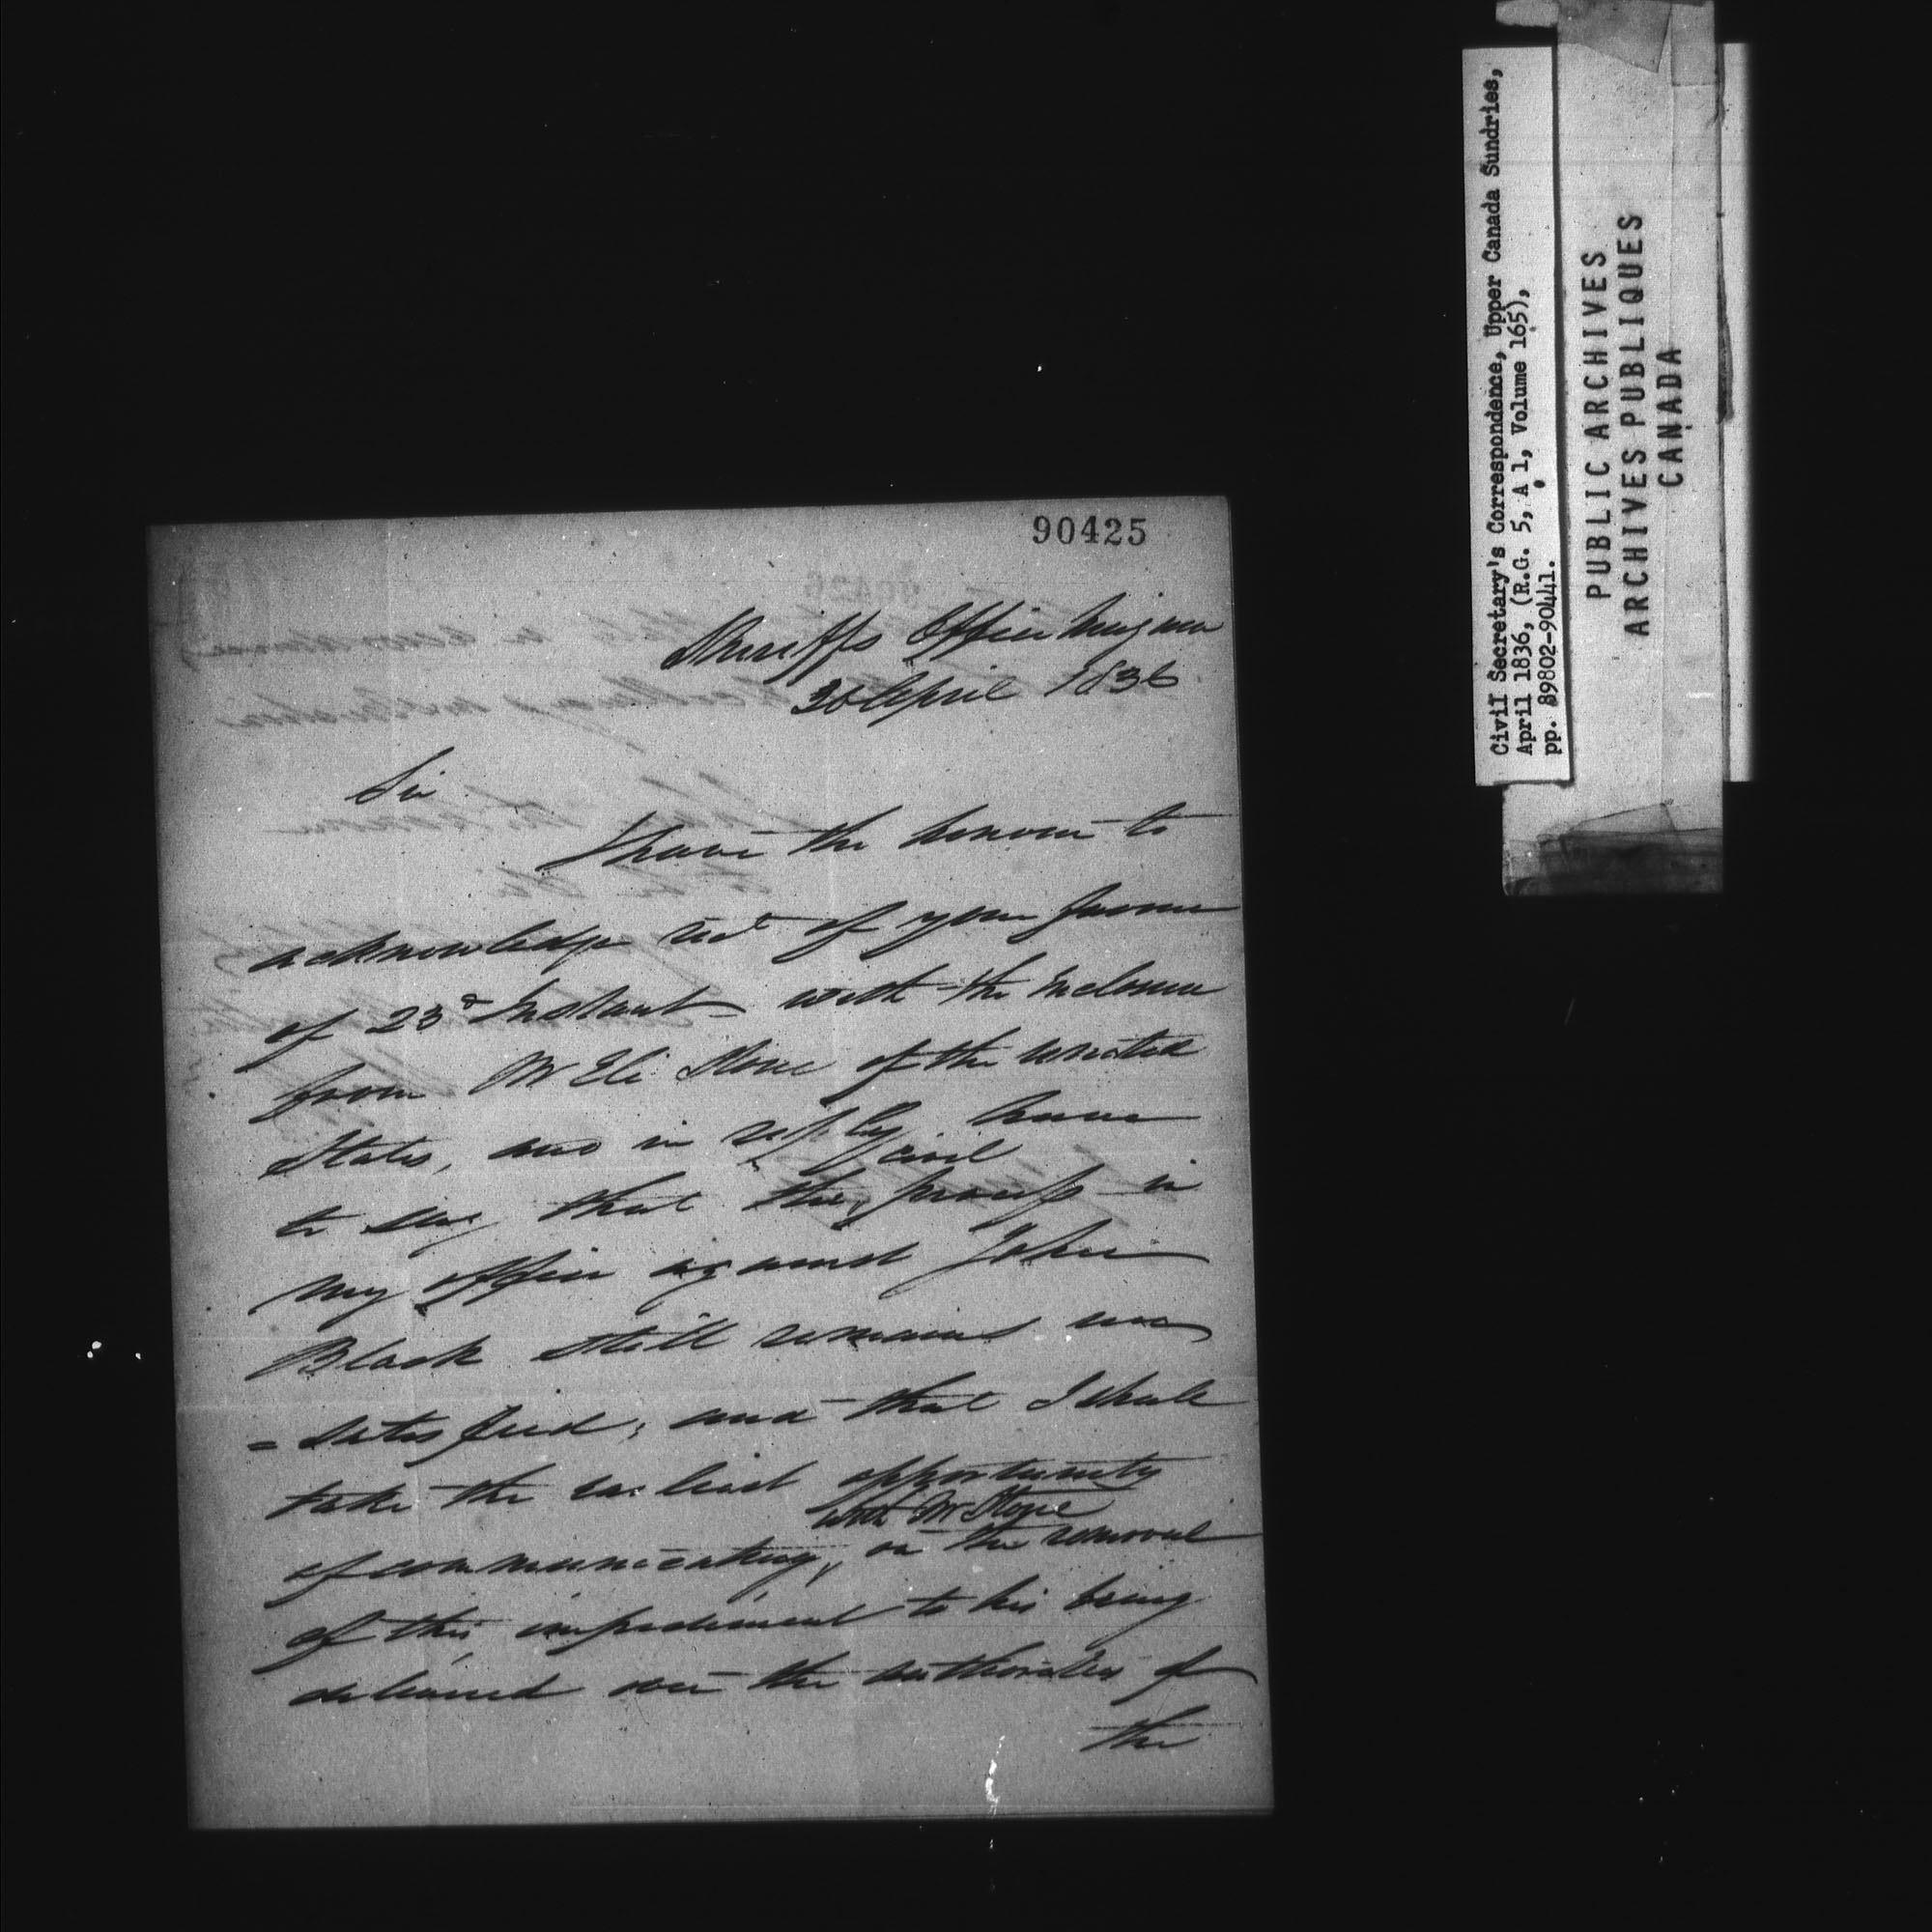 90425
Sheriffs Office Niagara
30 April 1836
Sir
I have the honour to
acknowledge rect of your favour
of 23d Instant with the Enclosure
from Mr Eli Stone of the United
States, and in reply have
to say that the civil process in
my office against John
Black still remains un
= satisfied; and that I shall
take the earliest opportunity
of communicating, with Mr Stone on the removal
of this impediment to his being
delivered over the authorities of
the
Civil Secretary's Correspondence, Upper Canada Sundries,
April 1836, (R.G. 5, A 1, Volume 165),
pp. 89802-90441.
PUBLIC ARCHIVES
ARCHIVES PUBLIQUES
CANADA